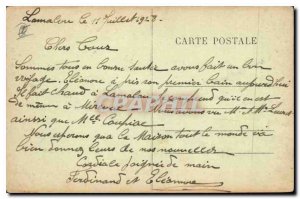 Lamalou le 11 Juillet 1928.
Chers Tous
CARTE POSTALE
Sommes tous en bonne santé avons fait un bon
voyage Eléonore a pris son premier bain aujourd'hui
il fait chaud à Lamalou
de même à
ainsi que Melle
Nous espérons que la Maison tout le monde va
bien donnez leurs de nos nouvelles
Cordiale poignée de main
Ferdinand et Eléonore